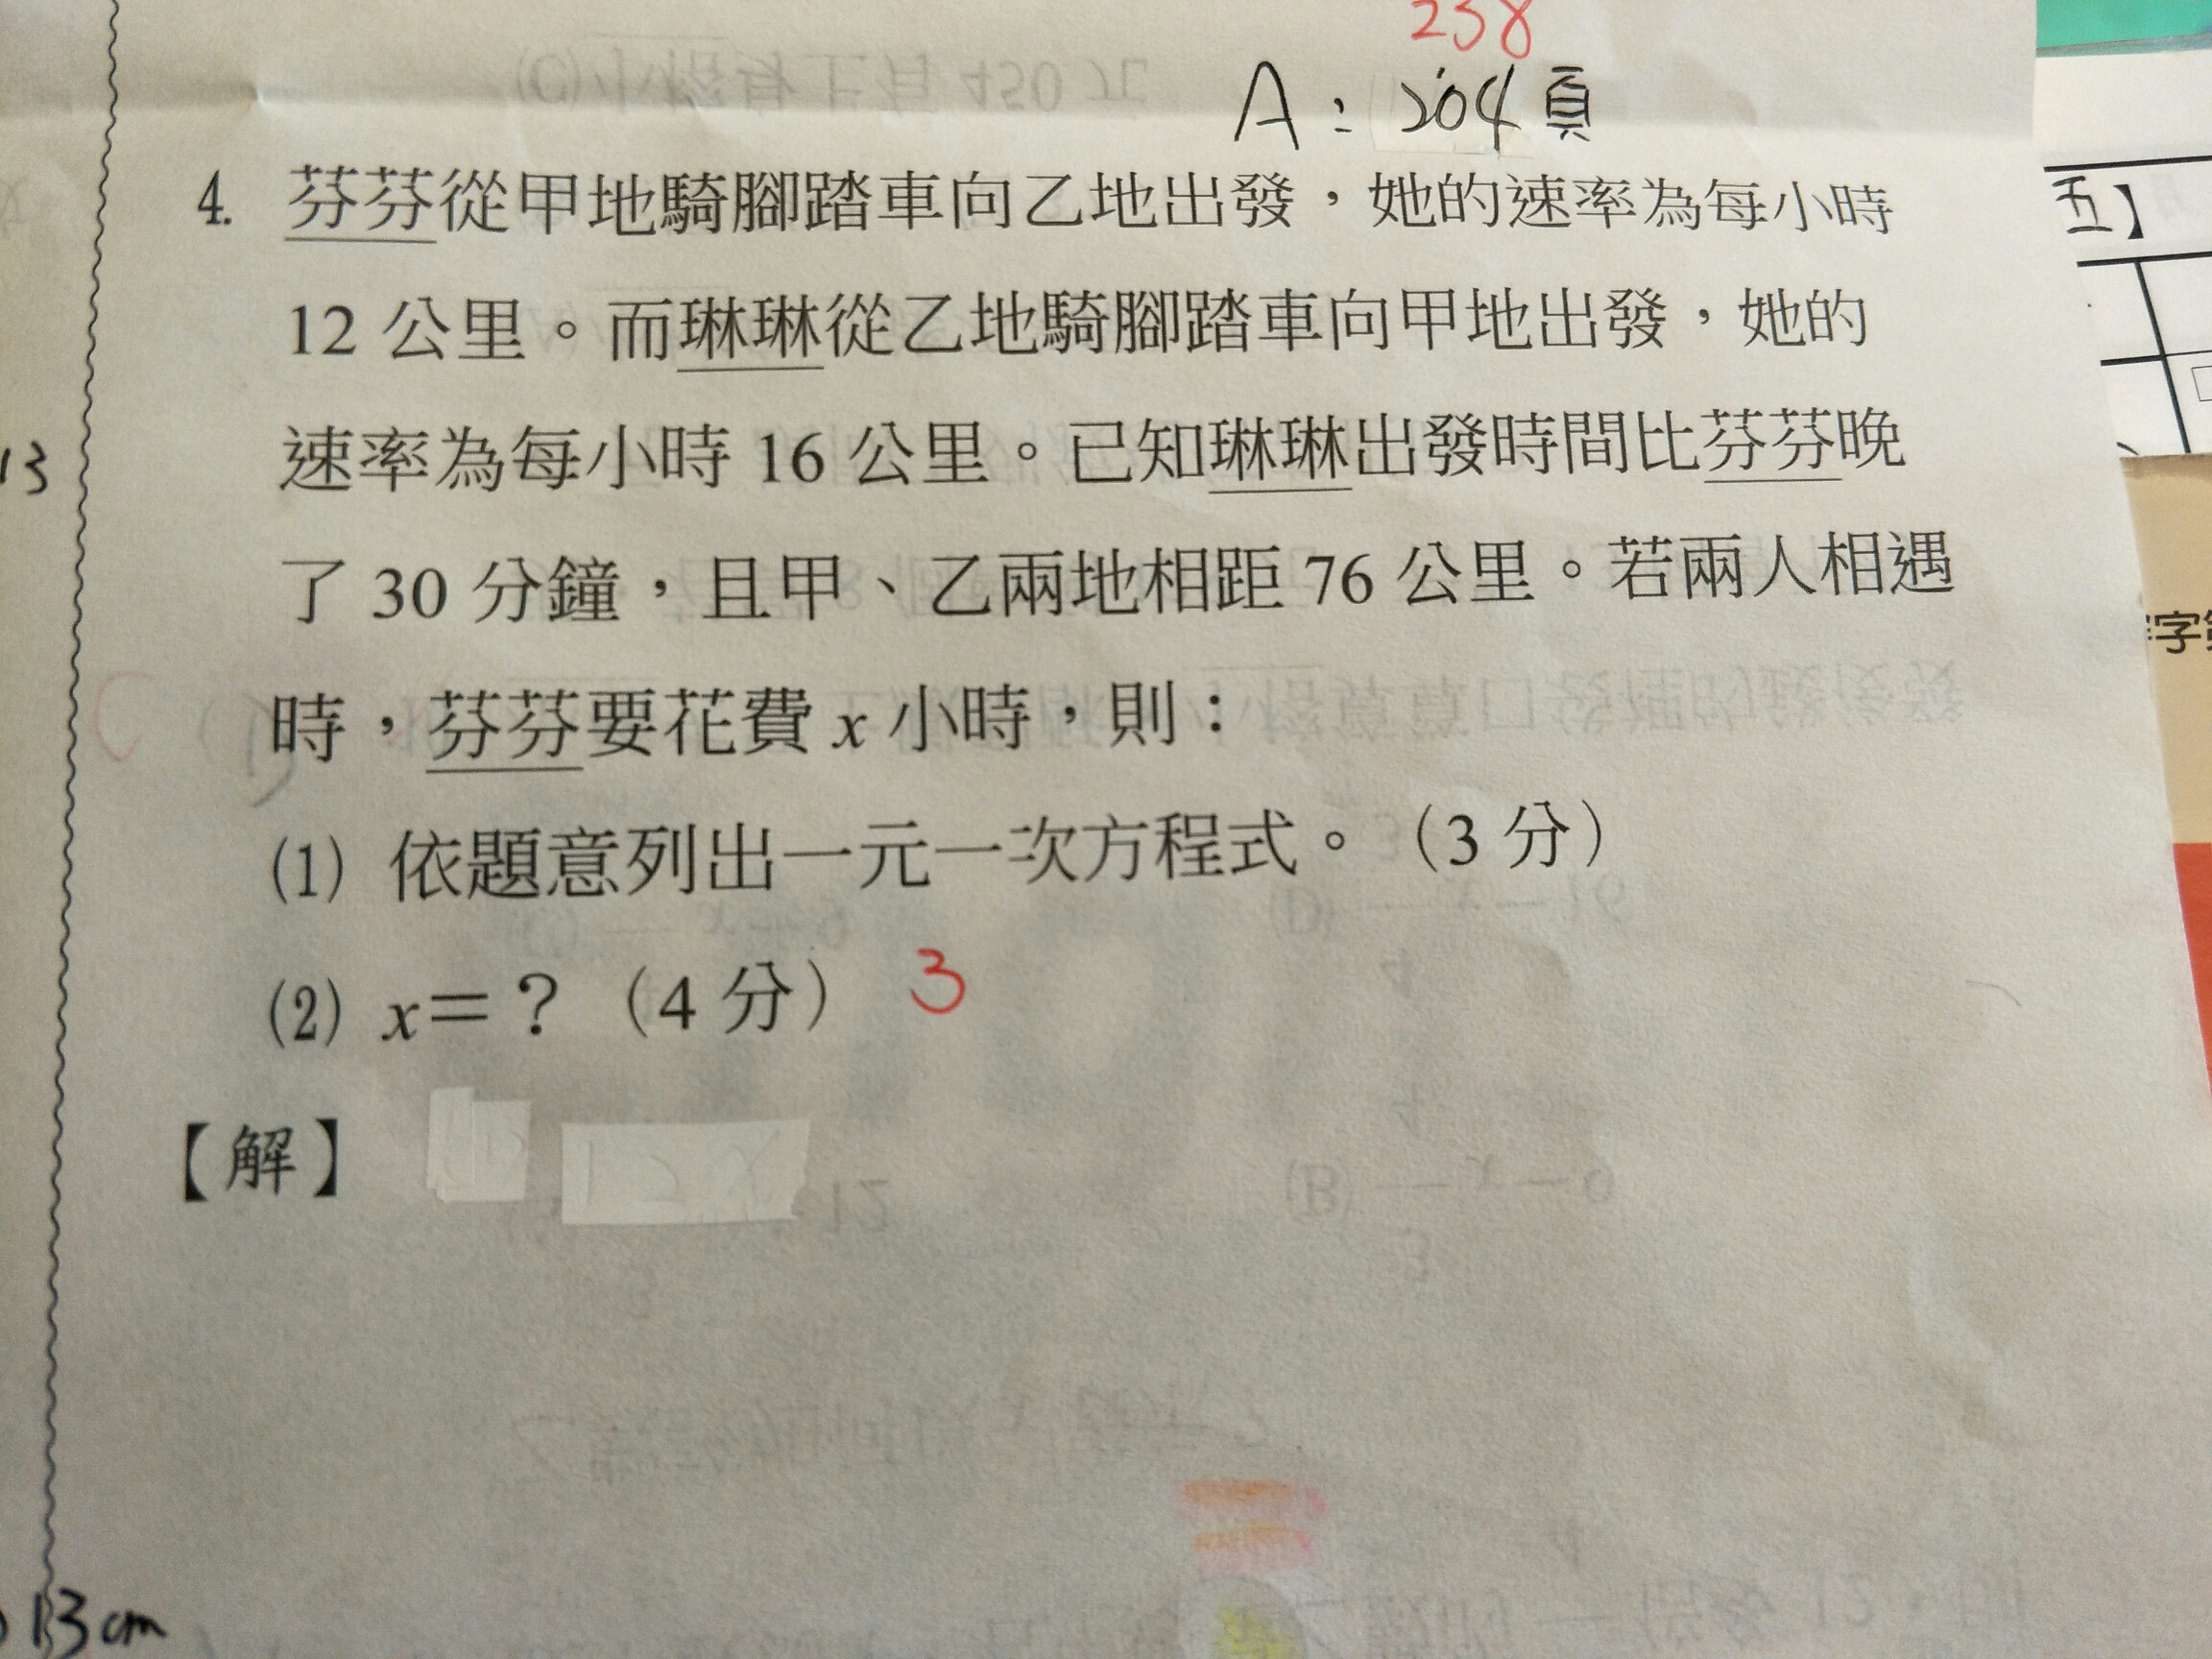 238
A：204頁
4. 芬芬從甲地騎腳踏車向乙地出發，她的速率為每小時
12 公里。而琳琳從乙地騎腳踏車向甲地出發，她的
速率為每小時 16 公里。已知琳琳出發時間比芬芬晚
了 30 分鐘，且甲、乙兩地相距 76 公里。若兩人相遇
時，芬芬要花費 x 小時，則：
(1) 依題意列出一元一次方程式。（3 分）
(2) x＝？（4 分） 3
【解】
13
13 cm
五】
字